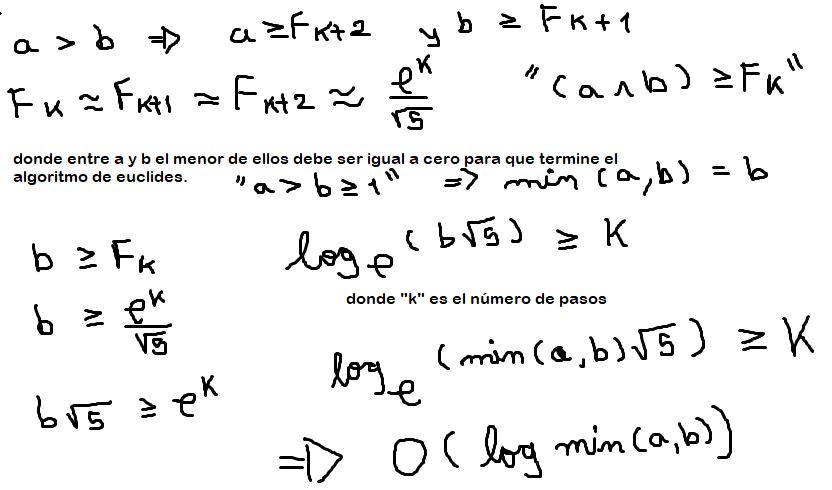 a > b ⇒ a ≥ F_{K+2} y b ≥ F_{K+1}
F_K ≈ F_{K+1} ≈ F_{K+2} ≈ e^K/√5 "(a ∧ b) ≥ F_K"
donde entre a y b el menor de ellos debe ser igual a cero para que termine el
algoritmo de euclides. "a > b ≥ 1" ⇒ min (a,b) = b
b ≥ F_K
b ≥ e^K/√5
b√5 ≥ e^K
log_e (b√5) ≥ K
donde "k" es el número de pasos
log_e (min(a,b)√5) ≥ K
⇒ O(log min(a,b))